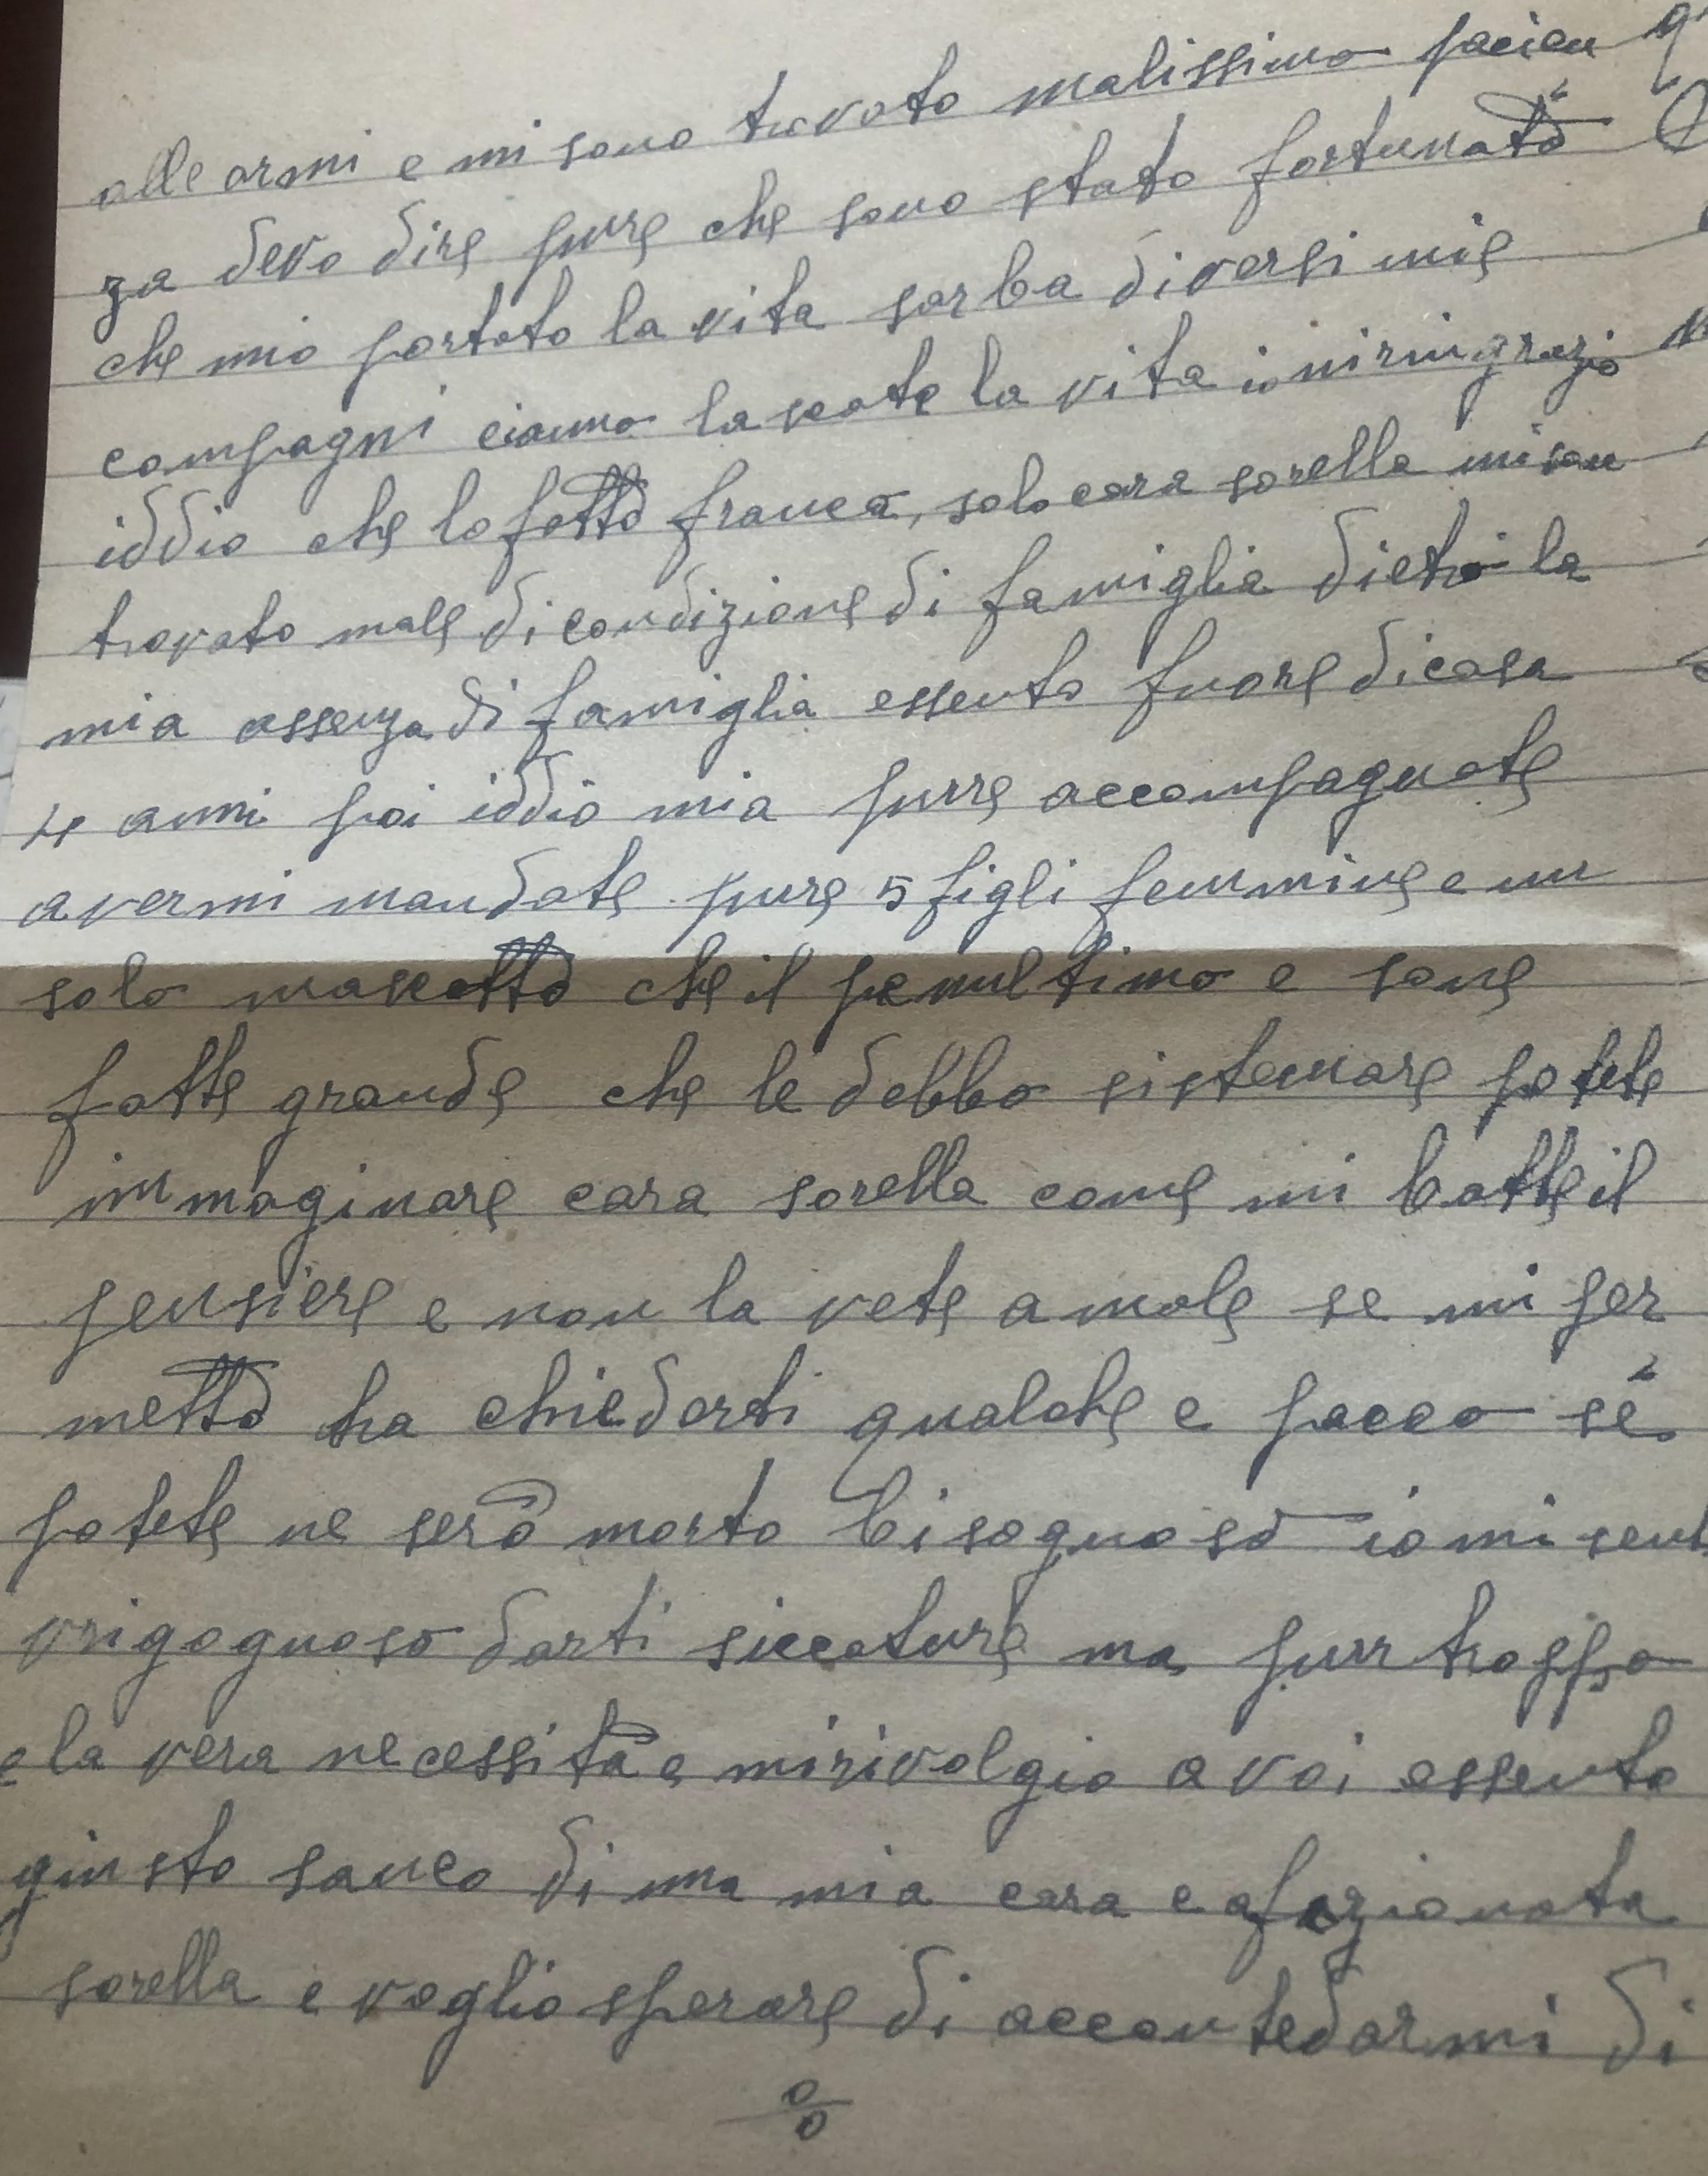 alle armi e mi sono trovato malissimo pacien
za devo dire purre che sono stato fortunato
che mio portato la vita sarba diversi mie
compagni cianno lascate la vita io miringrazio
iddio che lo fatto franca, solo cara sorella mison
trovato malle di condizione di famiglia dietro la
mia assenza di famiglia essento fuore di casa
4 anni poi iddio mia purre accompagnate
avermi mandate pure 5 figli femmine e un
solo mascotto che il penultimo e sone
fatte grande che le debbo sistemare potete
immaginare cara sorella come mi batte il
pensiere e non la vete a male se mi per
metto ha chiederti qualche e pacco se
potete ne serò morto bisognoso io mi sent
vrigognoso darti siccature ma purr troppo
e la vera necessità e mirivolgio a voi essento
giusto sanco di una mia cara e afezionata
sorella e voglio sperare di accontedarmi di
%